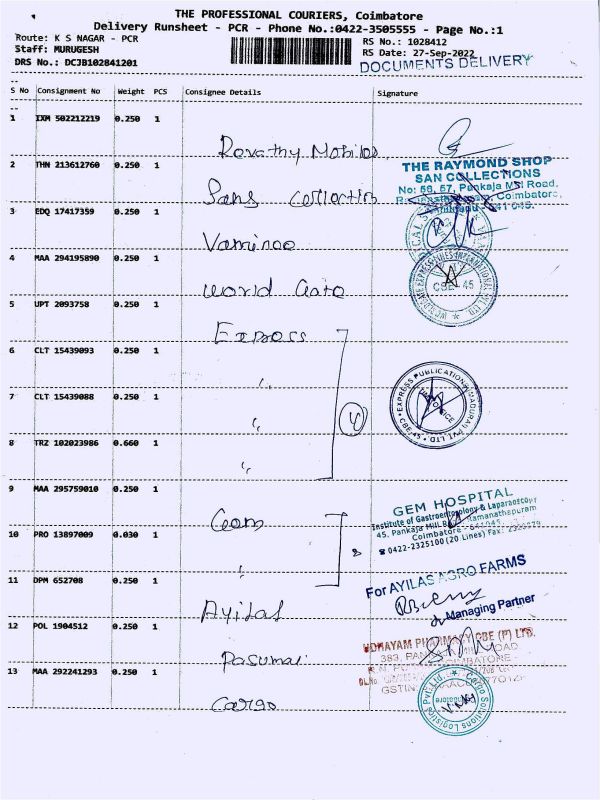 THE PROFESSIONAL COURIERS, Coimbatore
Delivery Runsheet - PCR - Phone No.:0422-3505555 - Page No.:1
Route: K S NAGAR - PCR
RS No.: 1028412
Staff: MURUGESH
RS Date: 27-Sep-2022
DRS No.: DCJB102841201
DOCUMENTS DELIVERY
S No Consignment No Weight PCS Consignee Details Signature
1 IXM 502212219 0.250 1
Revathy Mobiles
2 THN 213612760 0.250 1
THE RAYMOND SHOP
SAN COLLECTIONS
No: 56, 57, Pankaja Mill Road,
Coimbatore,
Sans collection
3 EDQ 17417359 0.250 1
4 MAA 294195890 0.250 1
CBE 45
World Gate
5 UPT 2093758 0.250 1
Express
6 CLT 15439093 0.250 1
"
7 CLT 15439088 0.250 1
"
4
EXPRESS PUBLICATIONS (MADURAI) PVT LTD
CBE-45
8 TRZ 102023986 0.660 1
"
9 MAA 295759010 0.250 1
GEM HOSPITAL
Institute of Gastroenterology & Laparoscopy
45, Pankaja Mill Road, Ramanathapuram
Coimbatore - 641045
0422-2325100 (20 Lines) Fax:
Gem
10 PRO 13897009 0.030 1
"
11 DPM 652708 0.250 1
For AYILAS AGRO FARMS
Managing Partner
Ayilas
12 POL 1904512 0.250 1
UDHAYAM PHARMACY CBE (P) LTD.
383, PANKAJA MILL ROAD
COIMBATORE -
GSTIN:
Pasumai
13 MAA 292241293 0.250 1
Cargo Solutions Logistics Pvt. Ltd.
Coimbatore
Cargo